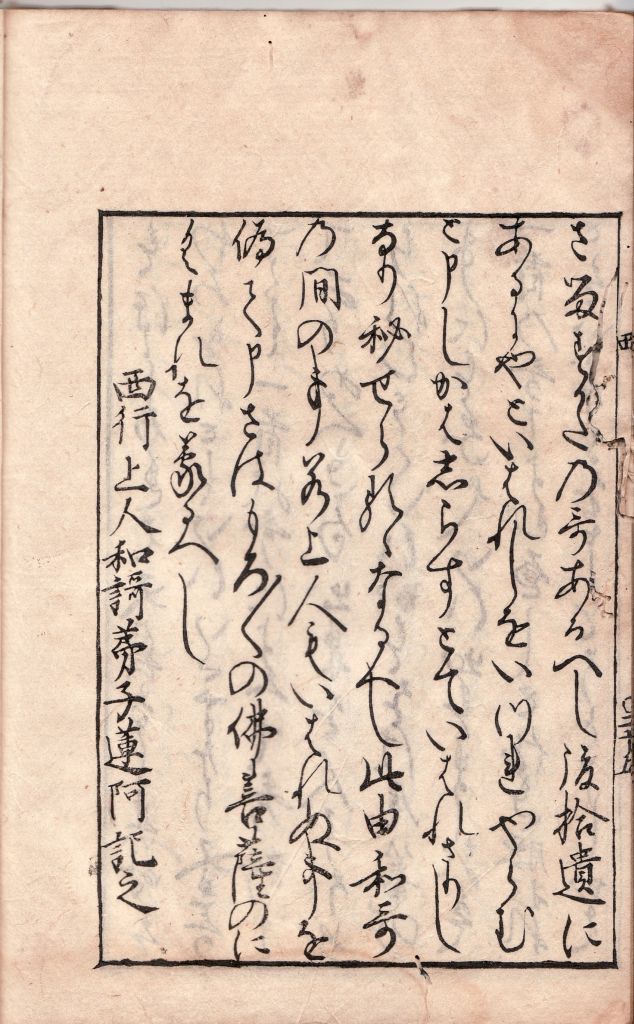 さ程すかたの哥あるへし後拾遺に
あるにやといはれしをいつれやらむ
と申しかはしらすとていはれさりし
なり秘せられけるなるへし此由和哥
乃間の事若上人もいはれぬ事を
偽て申さはもろ〱の佛菩薩のに
くまれを蒙るへし
西行上人和謌弟子蓮阿記之